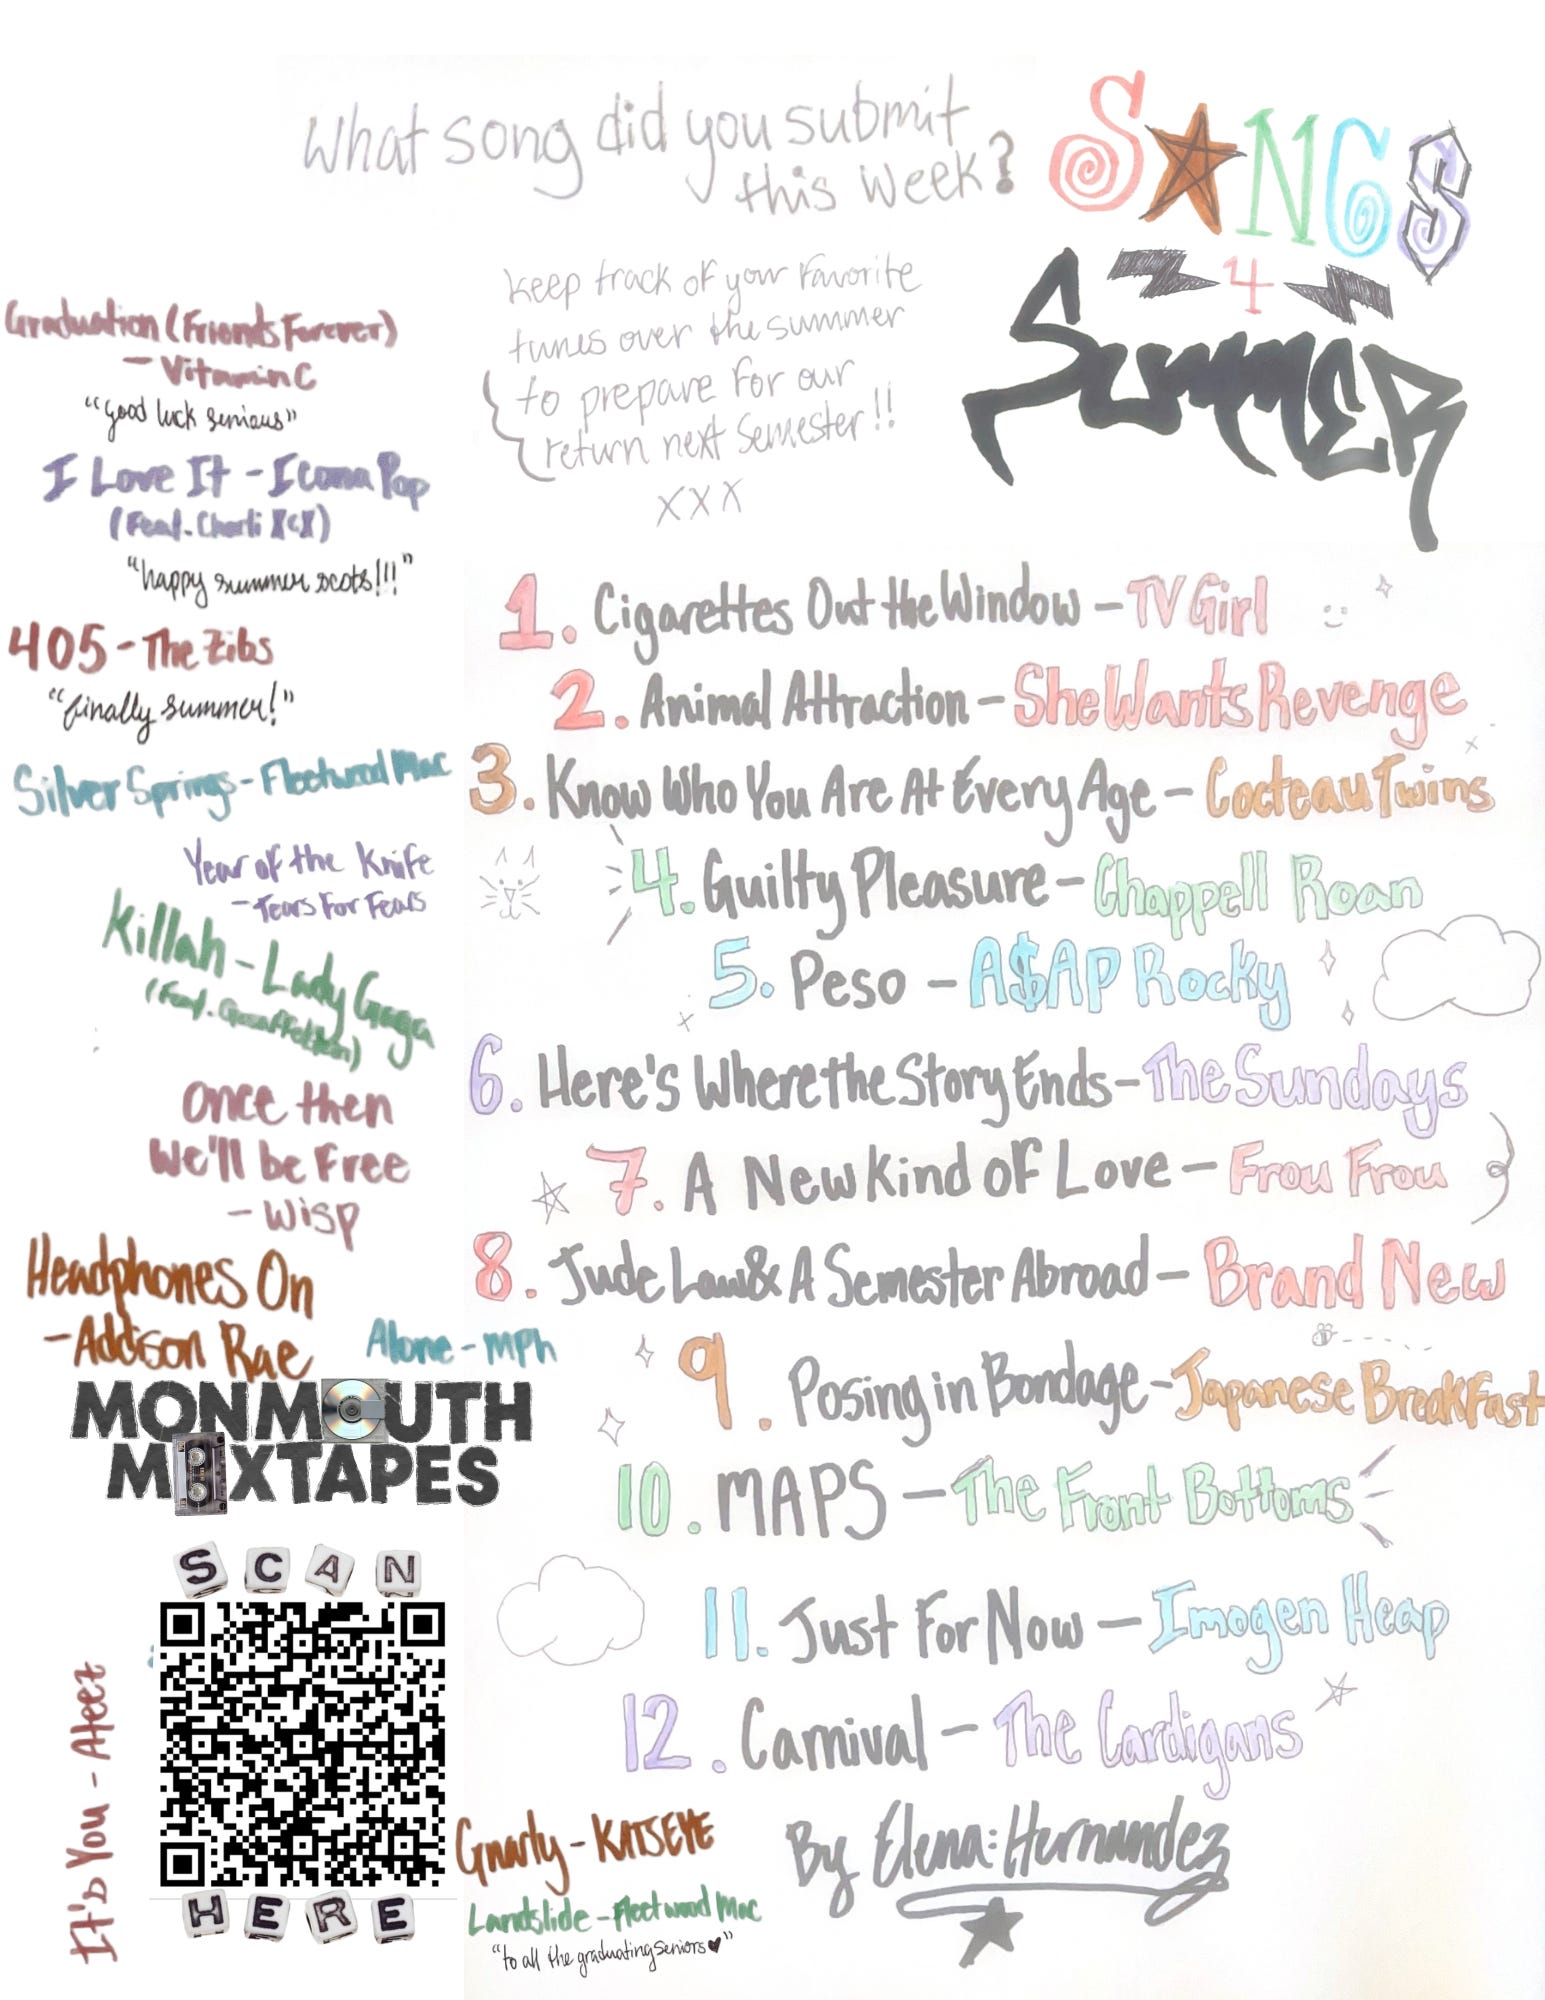 What song did you submit
this week?
SONGS
4
SUMMER
keep track of your favorite
tunes over the summer
to prepare for our
return next semester!!
XXX
Graduation (Friends Forever)
- Vitamin C
"good luck seniors"
I Love It - Icona Pop
(Feat. Charli XCX)
"happy summer scots!!!"
405 - The Zibs
"finally summer!"
Silver Springs - Fleetwood Mac
Year of the Knife
- Tears For Fears
Killah - Lady Gaga
(Feat. Gesaffelstein)
Once then
We'll be Free
- Wisp
Headphones On
- Addison Rae
Alone - mph
MONMOUTH
MIXTAPES
SCAN
HERE
It's You - Ateez
1. Cigarettes Out the Window - TV Girl
2. Animal Attraction - She Wants Revenge
3. Know Who You Are At Every Age - Cocteau Twins
4. Guilty Pleasure - Chappell Roan
5. Peso - A$AP Rocky
6. Here's Where the Story Ends - The Sundays
7. A New Kind of Love - Frou Frou
8. Jude Law & A Semester Abroad - Brand New
9. Posing in Bondage - Japanese Breakfast
10. MAPS - The Front Bottoms
11. Just For Now - Imogen Heap
12. Carnival - The Cardigans
By Elena Hernandez
Gnarly - KATSEYE
Landslide - Fleetwood Mac
"to all the graduating seniors ♥"